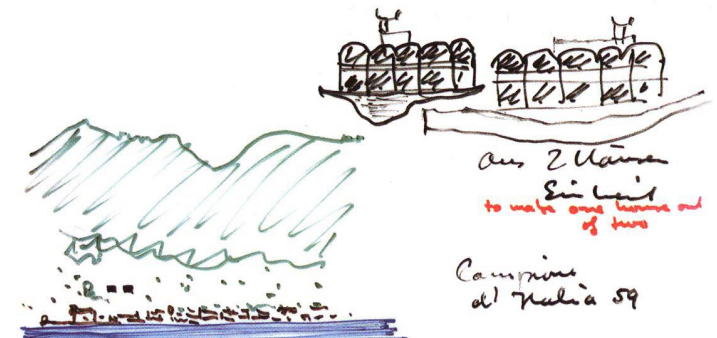 aus 2 Häuser
Einheit
to make one house out
of two
Campione
d' Italia 59